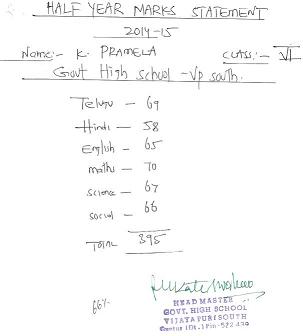 HALF YEAR MARKS STATEMENT
2014-15
Name:- K. PRAMELA CLASS:- VI
Govt High school - Vp south.
Telugu - 69
Hindi - 58
English - 65
maths - 70
science - 67
social - 66
TOTAL 395
66%
HEAD MASTER
GOVT. HIGH SCHOOL
VIJAYAPURI SOUTH
Guntur (Dt.) Pin-522 439